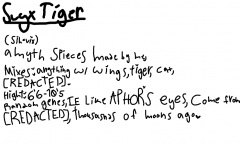 Suyx Tiger
(Sih-vix)
a myth spieces made by me,
Mixes: anything w/ wings, tiger, cat,
[REDACTED]-
Hight: 6'6-10'5
genes, IE Like APHOR's eyes, Come from
[REDACTED], thousasnds of moons ago